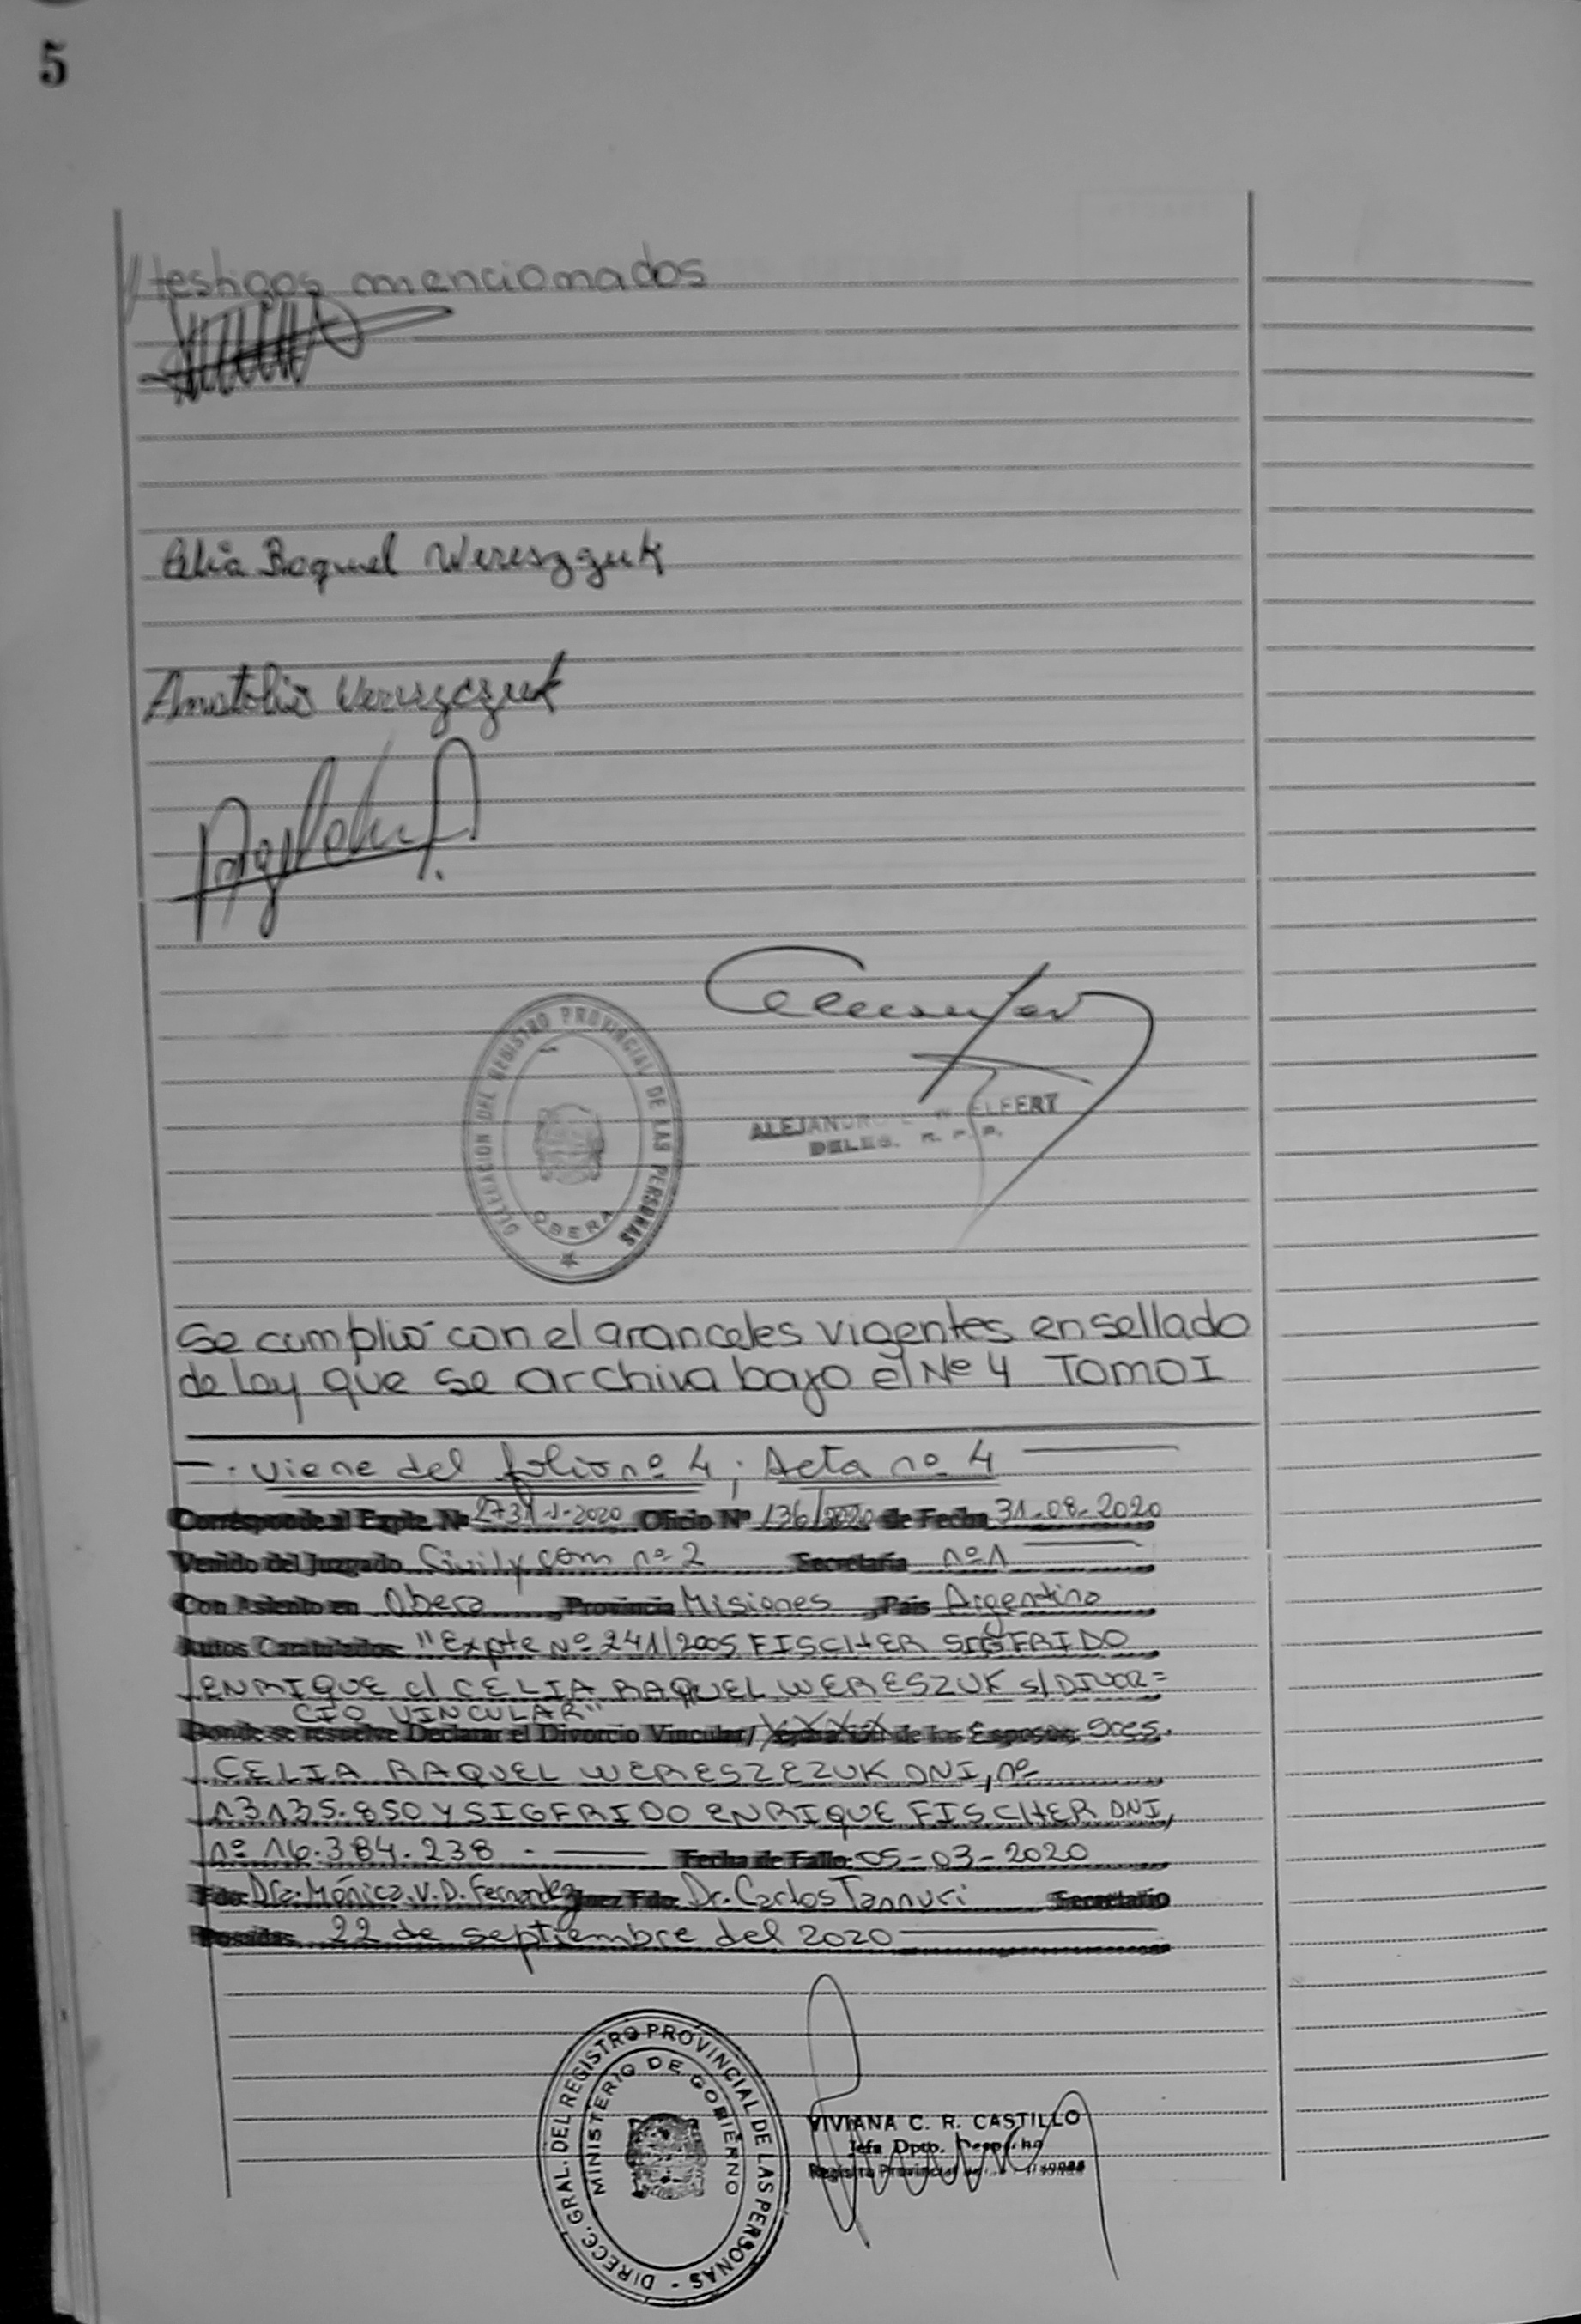 5
//testigos mencionados
Celia Raquel Wereszczuk
Anatolio Wereszczuk
DELEGACION DEL REGISTRO PROVINCIAL DE LAS PERSONAS
OBERA
ALEJANDRO ELFERT
DELEG. R. P. P.
Se cumplió con el aranceles vigentes en sellado
de ley que se archiva bajo el Nº 4 TOMO I
viene del folio nº 4; Acta nº 4
Corresponde al Expte. Nº 2020 Oficio Nº 136/2020 de Fecha 31-08-2020
Venido del Juzgado Civil y com nº 2 Secretaría nº 1
Con Asiento en Obera, Provincia Misiones, País Argentina
Autos Caratulados "Expte Nº 241/2005 FISCHER SIGFRIDO
ENRIQUE c/ CELIA RAQUEL WERESZUK s/DIVOR=
CIO VINCULAR"
Donde se resuelve Declarar el Divorcio Vincular/ de los Esposos: Sres.
CELIA RAQUEL WERESZEZUK DNI, nº
13135.850 Y SIGFRIDO ENRIQUE FISCHER DNI,
nº 16.384.238.- Fecha de Fallo: 05-03-2020
Fdo: Dra. Mónica.V.D. Fernandez Juez Fdo: Dr. Carlos Tannuri Secretario
Posadas 22 de septiembre del 2020
DIRECC. GRAL. DEL REGISTRO PROVINCIAL DE LAS PERSONAS -
MINISTERIO DE GOBIERNO
VIVIANA C. R. CASTILLO
Jefa Dpto. Despacho
Registro Provincial de